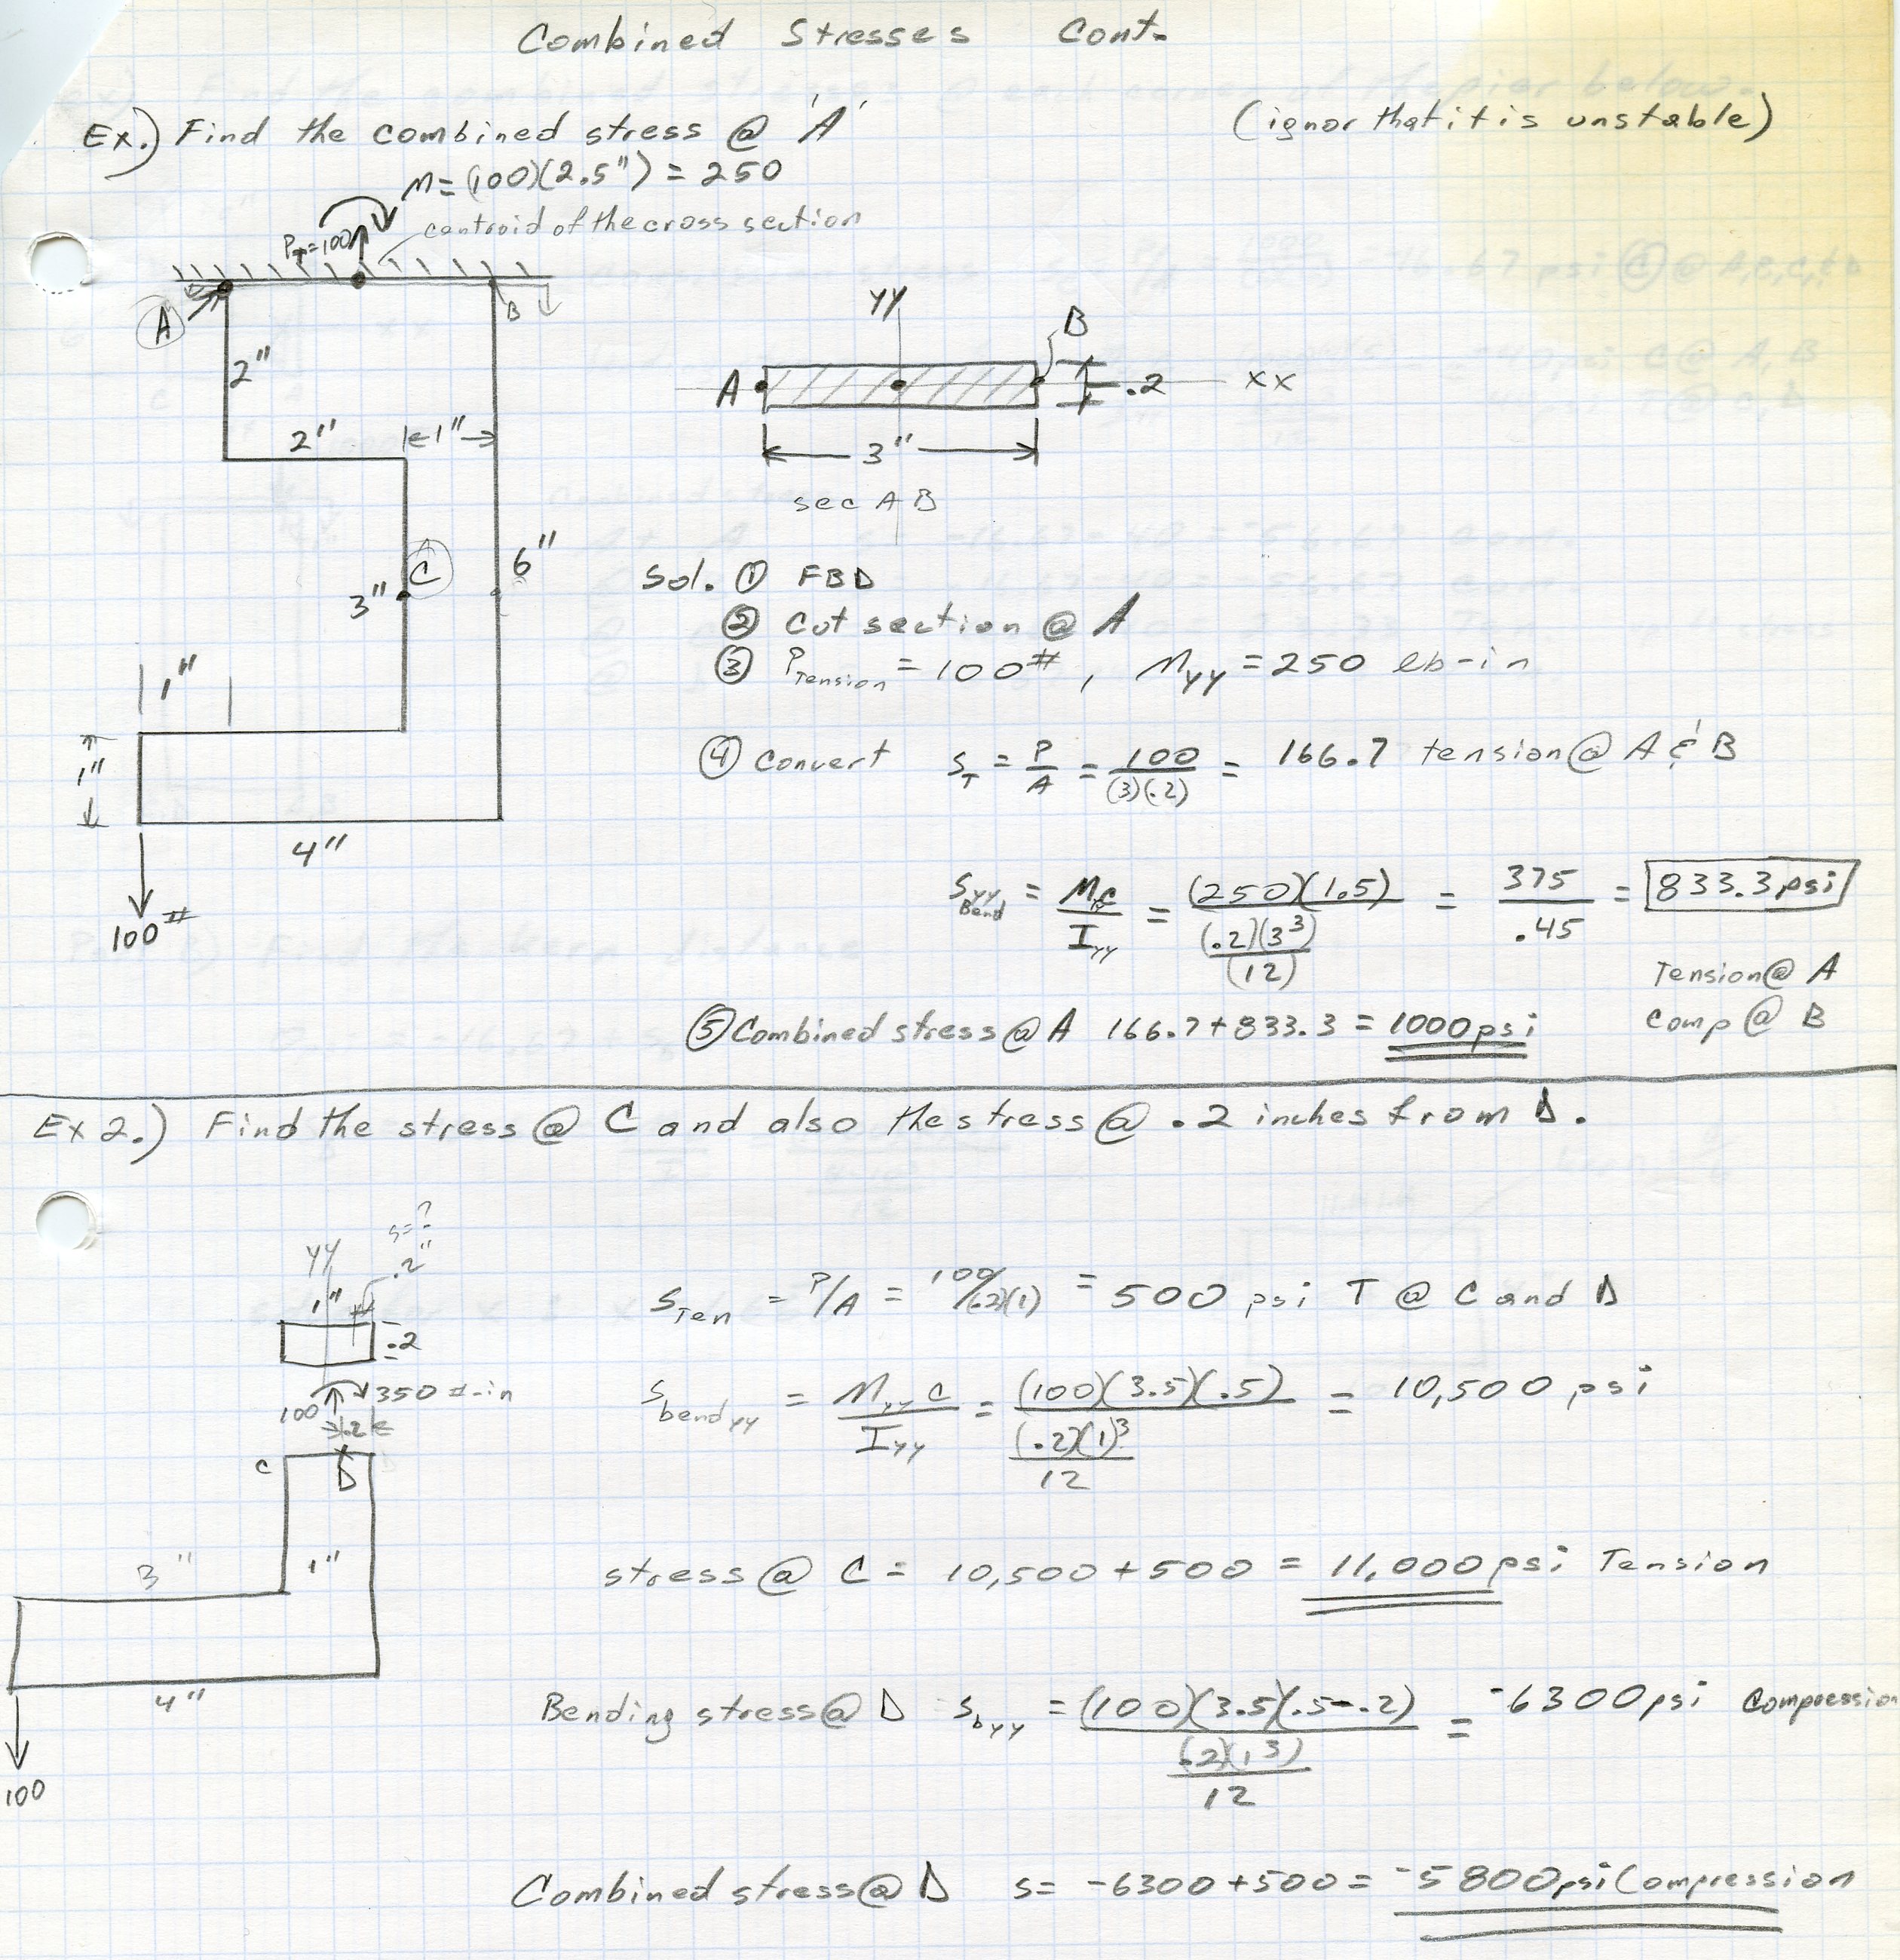 Combined Stresses Cont.
Ex.) Find the combined stress @ 'A'
(ignor that it is unstable)
M=(100)(2.5")=250
PT=100
centroid of the cross section
A
B
2"
2"
1"
C
3"
6"
1"
1"
4"
100#
YY
B
A
.2
XX
3"
sec AB
Sol. ① FBD
② Cut section @ A
③ P Tension = 100#, Myy = 250 lb-in
④ Convert sT = P/A = 100/(3)(.2) = 166.7 tension @ A & B
s yy Bend = Mc/Iyy = (250)(1.5)/((.2)(3³)/(12)) = 375/.45 = 833.3 psi
Tension @ A
Comp @ B
⑤ Combined stress @ A 166.7+833.3 = 1000 psi
Ex 2.) Find the stress @ C and also the stress @ .2 inches from D.
s=?
YY
.2"
1"
.2
350 #-in
100
.2
C
D
3"
1"
4"
100
s Ten = P/A = 100/(.2)(1) = 500 psi T @ C and D
s bend yy = Myy c/Iyy = (100)(3.5)(.5)/((.2)(1)³/12) = 10,500 psi
stress @ C = 10,500 + 500 = 11,000 psi Tension
Bending stress @ D s b yy = (100)(3.5)(.5-.2)/((.2)(1³)/12) = -6300 psi Compression
Combined stress @ D s = -6300 + 500 = -5800 psi Compression